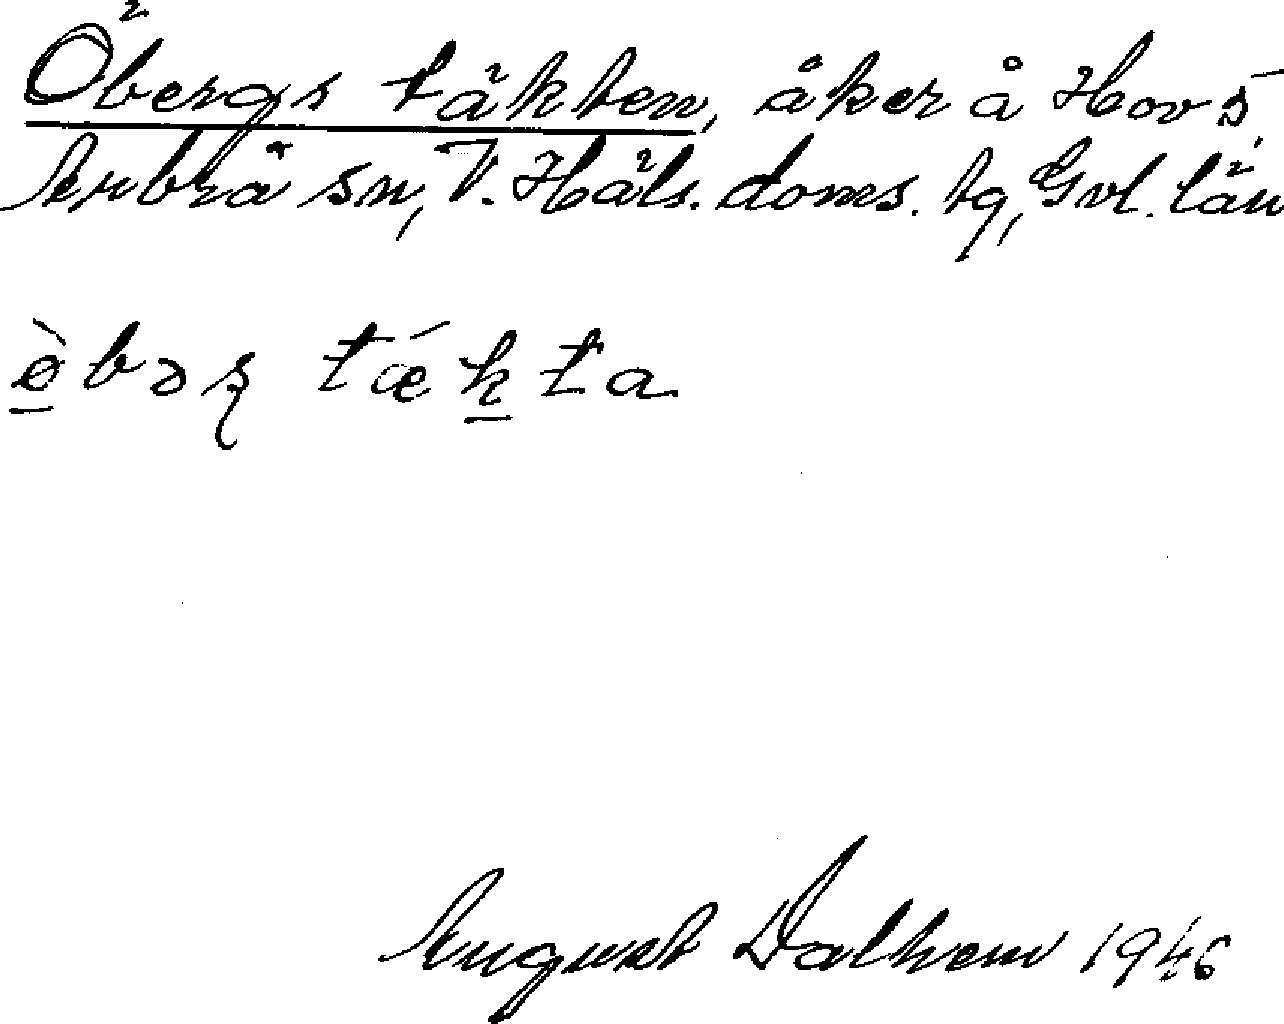 Öbergs täkten, åker å Hov 5
Arbrå sn, V. Häls. doms. tg, Gvl. län
täkta
August Dalhem 1946